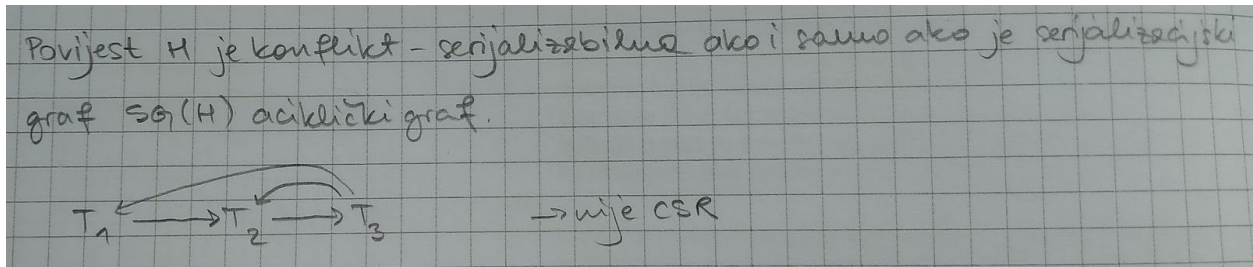 Povijest H je konflikt - serijalizabilna ako i samo ako je serijalizacijski
graf SG(H) aciklički graf.
T₁ → T₂ → T₃ → nije CSR